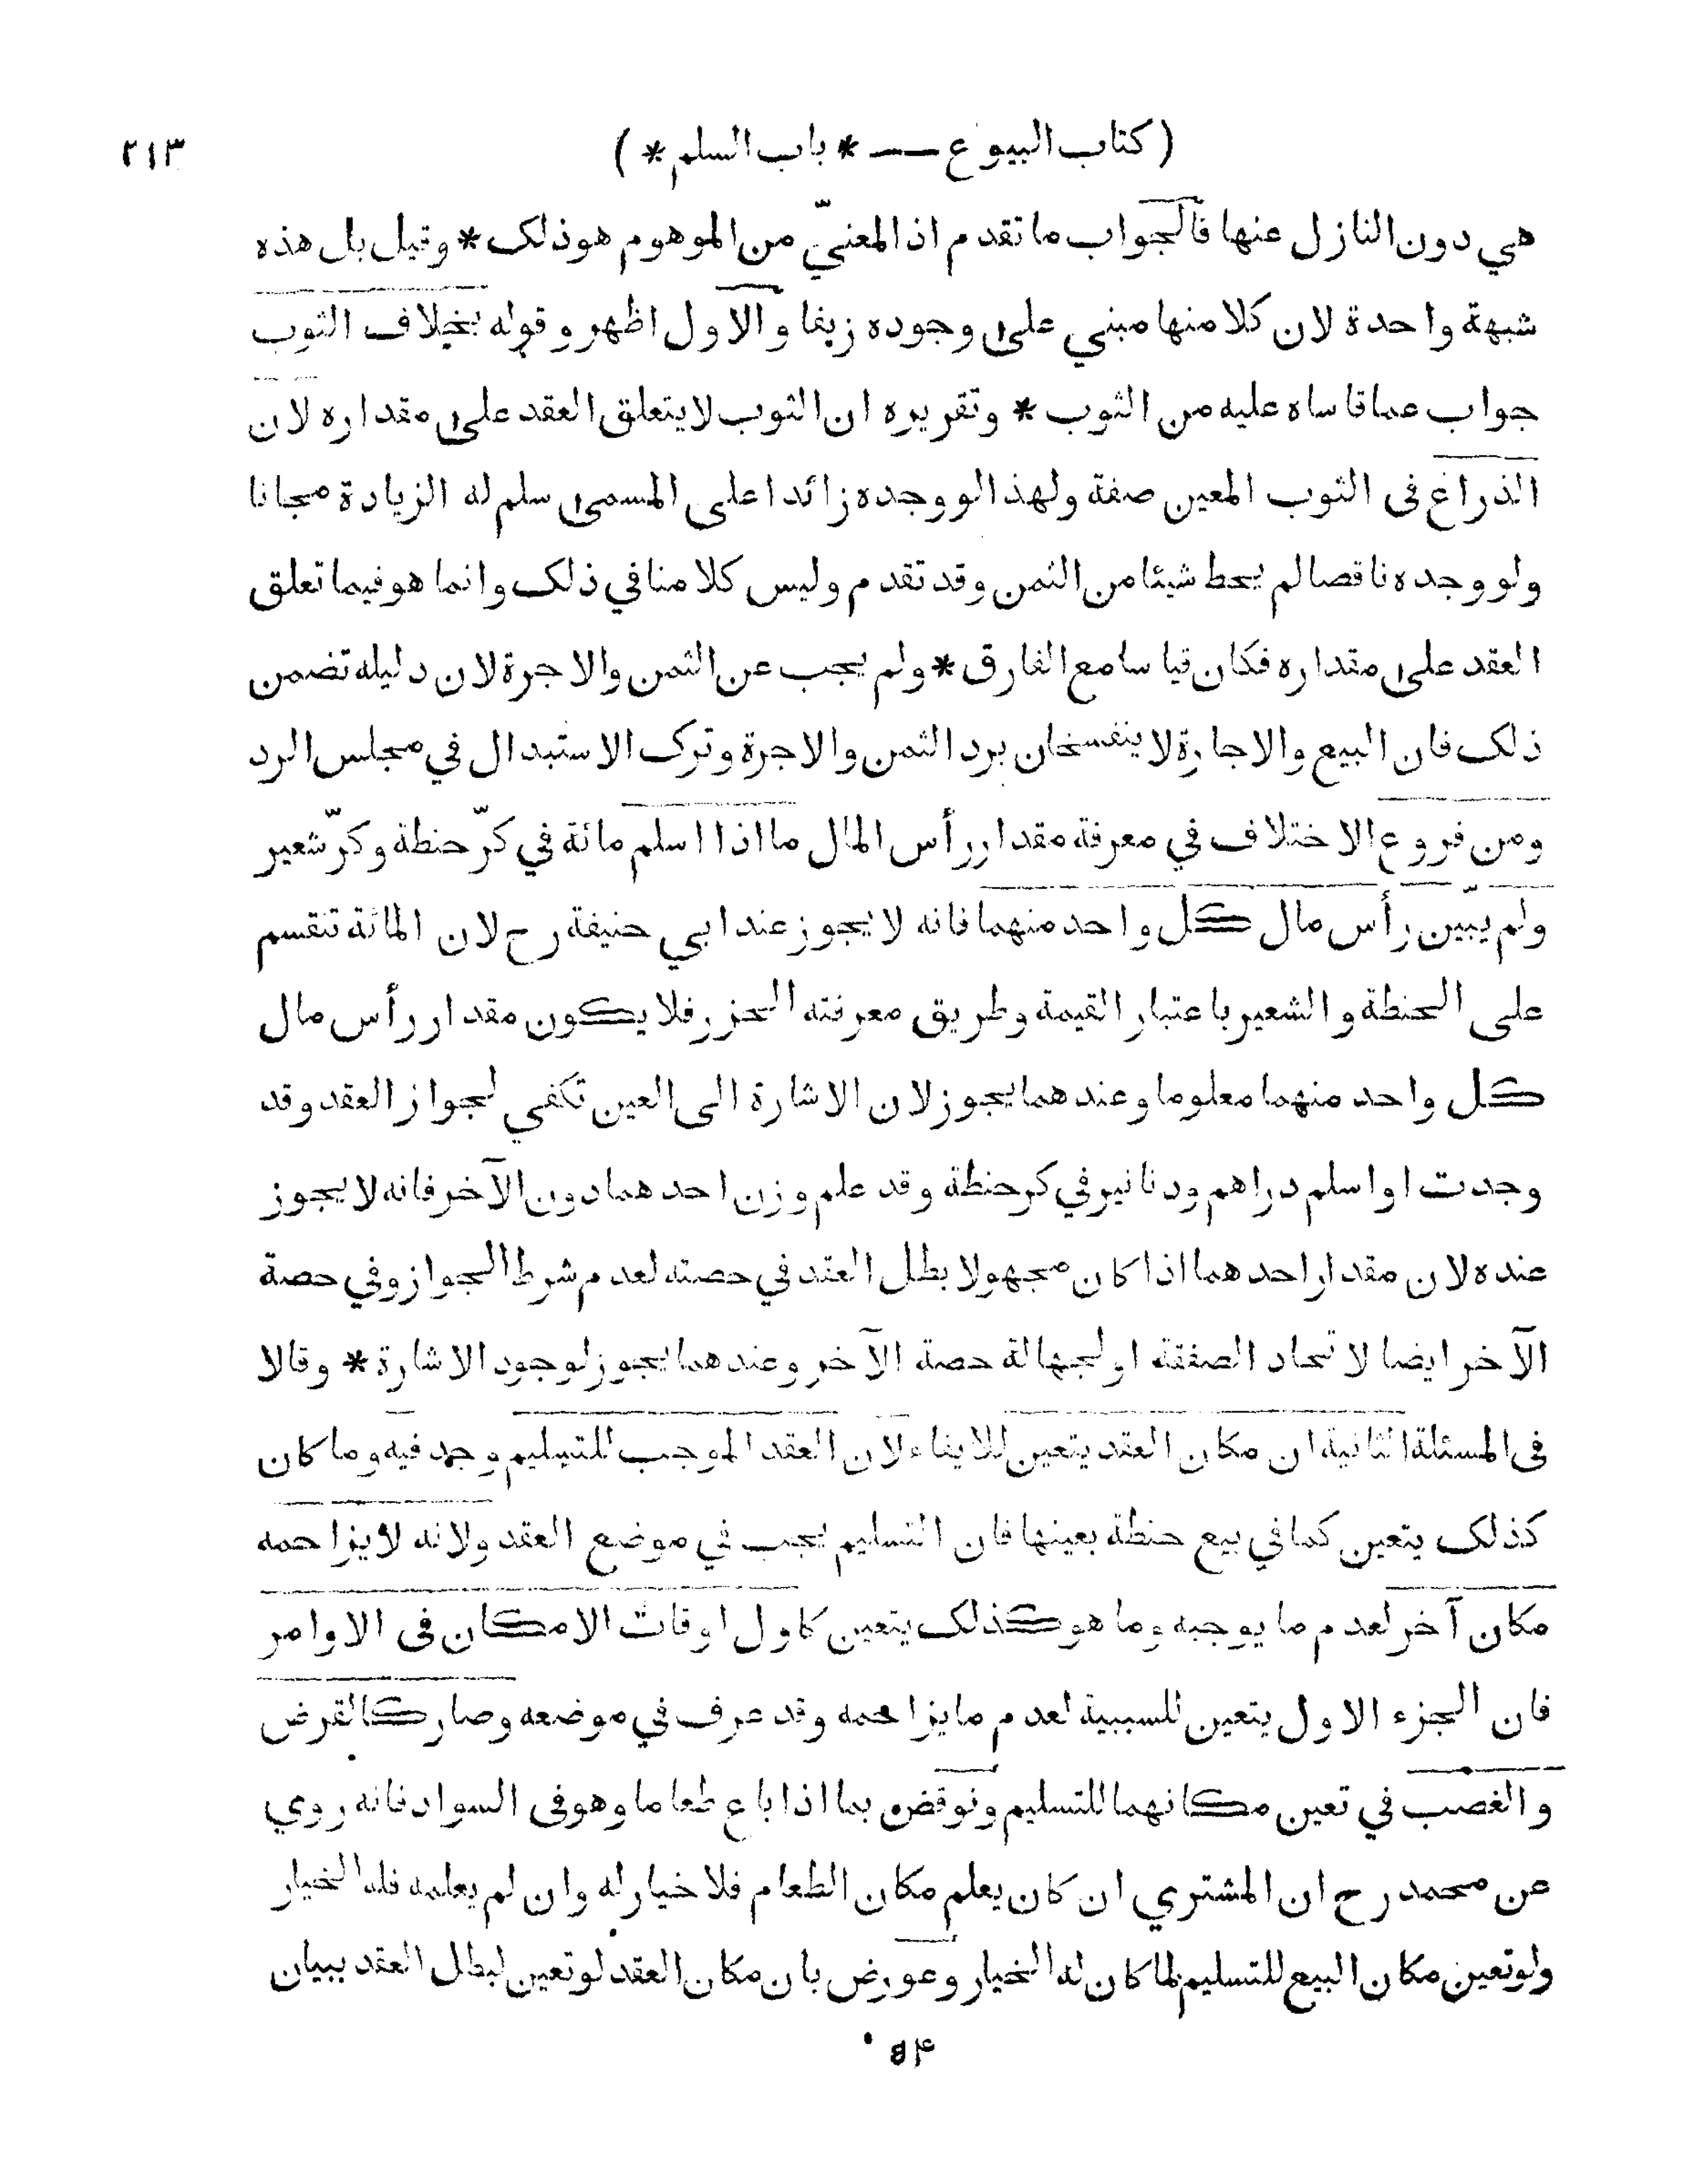 (كتاب البيوع — * باب السلم *) ٢١٣
هي دون النازل عنها فالجواب ما تقدم اذ المعنيّ من الموهوم هو ذلك * وقيل بل هذه
شبهة واحدة لان كلا منها مبني على وجوده زيفا والاول اظهر وقوله بخلاف الثوب
جواب عما قاساه عليه من الثوب * وتقريره ان الثوب لا يتعلق العقد على مقداره لان
الذراع فى الثوب المعين صفة ولهذا لو وجده زائدا على المسمى سلم له الزيادة مجانا
ولو وجده ناقصا لم يحط شيئا من الثمن وقد تقدم وليس كلامنا في ذلك وانما هو فيما تعلق
العقد على مقداره فكان قياسا مع الفارق * ولم يجب عن الثمن والاجرة لان دليله تضمن
ذلك فان البيع والاجارة لا ينفسخان برد الثمن والاجرة وترك الاستبدال في مجلس الرد
ومن فروع الاختلاف في معرفة مقدار رأس المال ما اذا اسلم مائة في كرّ حنطة وكرّ شعير
ولم يبيّن رأس مال كل واحد منهما فانه لا يجوز عند ابي حنيفة رح لان المائة تنقسم
على الحنطة والشعير باعتبار القيمة وطريق معرفته الحزر فلا يكون مقدار رأس مال
كل واحد منهما معلوما وعندهما يجوز لان الاشارة الى العين تكفي لجواز العقد وقد
وجدت او اسلم دراهم ودنانير في كر حنطة وقد علم وزن احدهما دون الآخر فانه لا يجوز
عنده لان مقدار احدهما اذا كان مجهولا بطل العقد في حصته لعدم شرط الجواز وفي حصة
الآخر ايضا لاتحاد الصفقة او لجهالة حصة الآخر وعندهما يجوز لوجود الاشارة * وقالا
فى المسئلة الثانية ان مكان العقد يتعين للايفاء لان العقد الموجب للتسليم وجد فيه وما كان
كذلك يتعين كما في بيع حنطة بعينها فان التسليم يجب في موضع العقد ولانه لا يزاحمه
مكان آخر لعدم ما يوجبه وما هو كذلك يتعين كاول اوقات الامكان فى الاوامر
فان الجزء الاول يتعين للسببية لعدم ما يزاحمه وقد عرف في موضعه وصار كالقرض
والغصب في تعين مكانهما للتسليم ونوقض بما اذا باع طعاما وهو فى السواد فانه روي
عن محمد رح ان المشتري ان كان يعلم مكان الطعام فلا خيار له وان لم يعلمه فله الخيار
ولو تعين مكان البيع للتسليم لما كان له الخيار وعورض بان مكان العقد لو تعين لبطل العقد ببيان